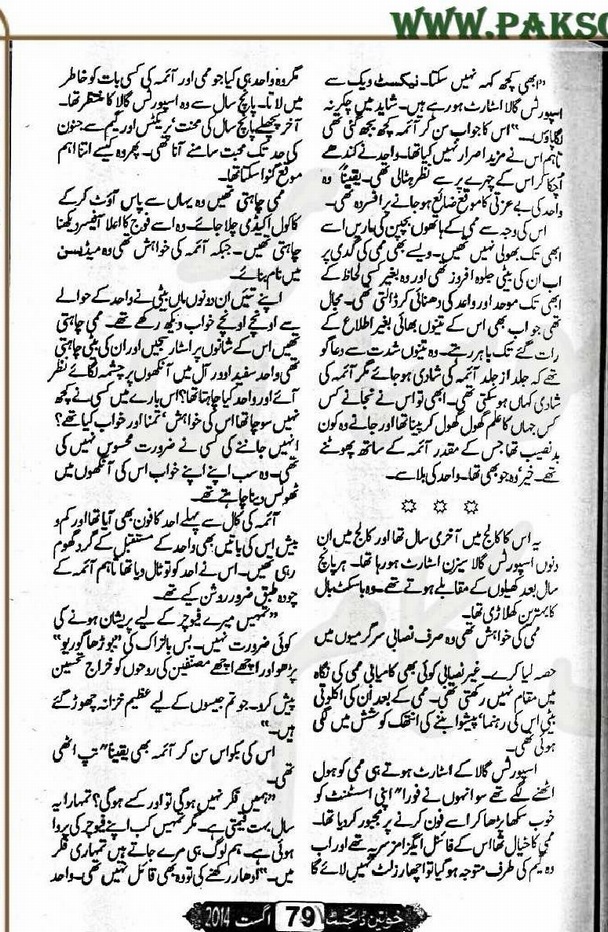 WWW.PAKSO
"ابھی کچھ کہہ نہیں سکتا۔ نیکسٹ ویک سے
اسپورٹس گالا اسٹارٹ ہو رہے ہیں۔ شاید میں چکر نہ
لگاپاؤں۔" اس کا جواب سن کر آئمہ کچھ بجھ گئی تھی
تاہم اس نے مزید اصرار نہیں کیا تھا۔ واحد نے کندھے
اُچکا کر اس کے چہرے پر سے نظر ہٹالی تھی۔ یقیناً وہ
واحد کی بے عزتی کا موقع ضائع ہو جانے پر افسردہ تھی۔
اس کی وجہ سے ممی کے ہاتھوں بچپن کی ماریں اسے
ابھی تک بھولی نہیں تھیں۔ ویسے بھی ممی کی گدی پر
اب ان کی بیٹی جلوہ افروز تھی اور وہ بغیر کسی لحاظ کے
ابھی تک موحد اور واعد کی دھنائی کر ڈالتی تھی۔ مجال
تھی جو اب بھی اس کے تینوں بھائی بغیر اطلاع کے
رات گئے تک باہر رہتے۔ وہ تینوں شدت سے دعا گو
تھے کہ جلد از جلد آئمہ کی شادی ہو جائے مگر آئمہ کی
شادی کہاں ہو سکتی تھی۔ ابھی تو اس نے نجانے کس
کس جہاں کا علم گھول گھول کر پینا تھا اور جانے وہ کون
بدنصیب تھا جس کے مقدر آئمہ کے ساتھ پھوٹنے
تھے۔ خیر، وہ جو بھی تھا۔ واحد کی بلا سے۔
☼ ☼ ☼
یہ اس کا کالج میں آخری سال تھا اور کالج میں ان
دنوں اسپورٹس گالا سیزن اسٹارٹ ہو رہا تھا۔ ہر پانچ
سال بعد کھیلوں کے مقابلے ہوتے تھے۔ وہ باسکٹ بال
کا بہترین کھلاڑی تھا۔
ممی کی خواہش تھی وہ صرف نصابی سرگرمیوں میں
حصہ لیا کرے۔ غیر نصابی کوئی بھی کامیابی ممی کی نگاہ
میں مقام نہیں رکھتی تھی۔ ممی کے بعد اُن کی اکلوتی
بیٹی اس کی رہنما، پیشوا بننے کی انتھک کوشش میں لگی
ہوئی تھی۔
اسپورٹس گالا کے اسٹارٹ ہوتے ہی ممی کو ہول
اٹھنے لگے تھے سو انہوں نے فوراً اپنی اسسٹنٹ کو
خوب سکھا پڑھا کر اسے فون کرنے پر مجبور کر دیا تھا۔
ممی کا خیال تھا اس کے فائنل ایگزامز سر پہ تھے اور اب
وہ گیم کی طرف متوجہ ہو گیا تو اچھا رزلٹ نہیں لائے گا
مگر وہ واحد ہی کیا جو ممی اور آئمہ کی کسی بات کو خاطر
میں لاتا۔ پانچ سال سے وہ اسپورٹس گالا کا منتظر تھا۔
آخر پچھلے پانچ سال کی محنت، پریکٹس اور گیم سے جنون
کی حد تک محبت سامنے آنا تھی۔ پھر وہ کیسے اتنا اہم
موقع گنوا سکتا تھا۔
ممی چاہتی تھیں وہ یہاں سے پاس آؤٹ کر کے
کاکول اکیڈمی چلا جائے۔ وہ اسے فوج کا اعلا آفیسر دیکھنا
چاہتی تھیں۔ جبکہ آئمہ کی خواہش تھی وہ میڈیسن
میں نام بنائے۔
اپنے تئیں ان دونوں ماں بیٹی نے واحد کے حوالے
سے اونچے اونچے خواب دیکھ رکھے تھے۔ ممی چاہتی
تھیں اس کے شانوں پر اسٹار سجیں اور ان کی بیٹی چاہتی
تھی واحد سفید اوور آل میں آنکھوں پر چشمہ لگائے نظر
آئے اور واحد کیا چاہتا تھا؟ اس بارے میں کسی نے کچھ
نہیں سوچا تھا اس کی خواہش، تمنا اور خواب کیا تھے؟
انہیں جاننے کی کسی نے ضرورت محسوس نہیں کی
تھی۔ وہ سب اپنے اپنے خواب اس کی آنکھوں میں
ٹھونس دینا چاہتے تھے۔
آئمہ کی کال سے پہلے احد کا فون بھی آیا تھا اور کم و
بیش اس کی باتیں بھی واحد کے مستقبل کے گرد گھوم
رہی تھیں۔ اس نے احد کو تو ٹال دیا تھا تاہم آئمہ کے
چودہ طبق ضرور روشن کیے تھے۔
"تمہیں میرے فیوچر کے لیے پریشان ہونے کی
کوئی ضرورت نہیں۔ بس بالزاک کی "بوڑھا گوریو"
پڑھو اور اچھے اچھے مصنفین کی روحوں کو خراج تحسین
پیش کرو۔ جو تم جیسوں کے لیے عظیم خزانہ چھوڑ گئے
ہیں۔"
اس کی بکواس سن کر آئمہ بھی یقیناً تپ اٹھی
تھی۔
"ہمیں فکر نہیں ہوگی تو اور کسے ہوگی؟ تمہارا یہ
سال بہت قیمتی ہے۔ مگر تمہیں کب اپنے فیوچر کی پروا
ہوئی ہے۔ ہم لوگ ہی مرے جاتے ہیں تمہاری فکر
میں۔" ادھار رکھنے کی تو وہ بھی قائل نہیں تھی۔ واحد
خواتین ڈائجسٹ 79 اگست 2014